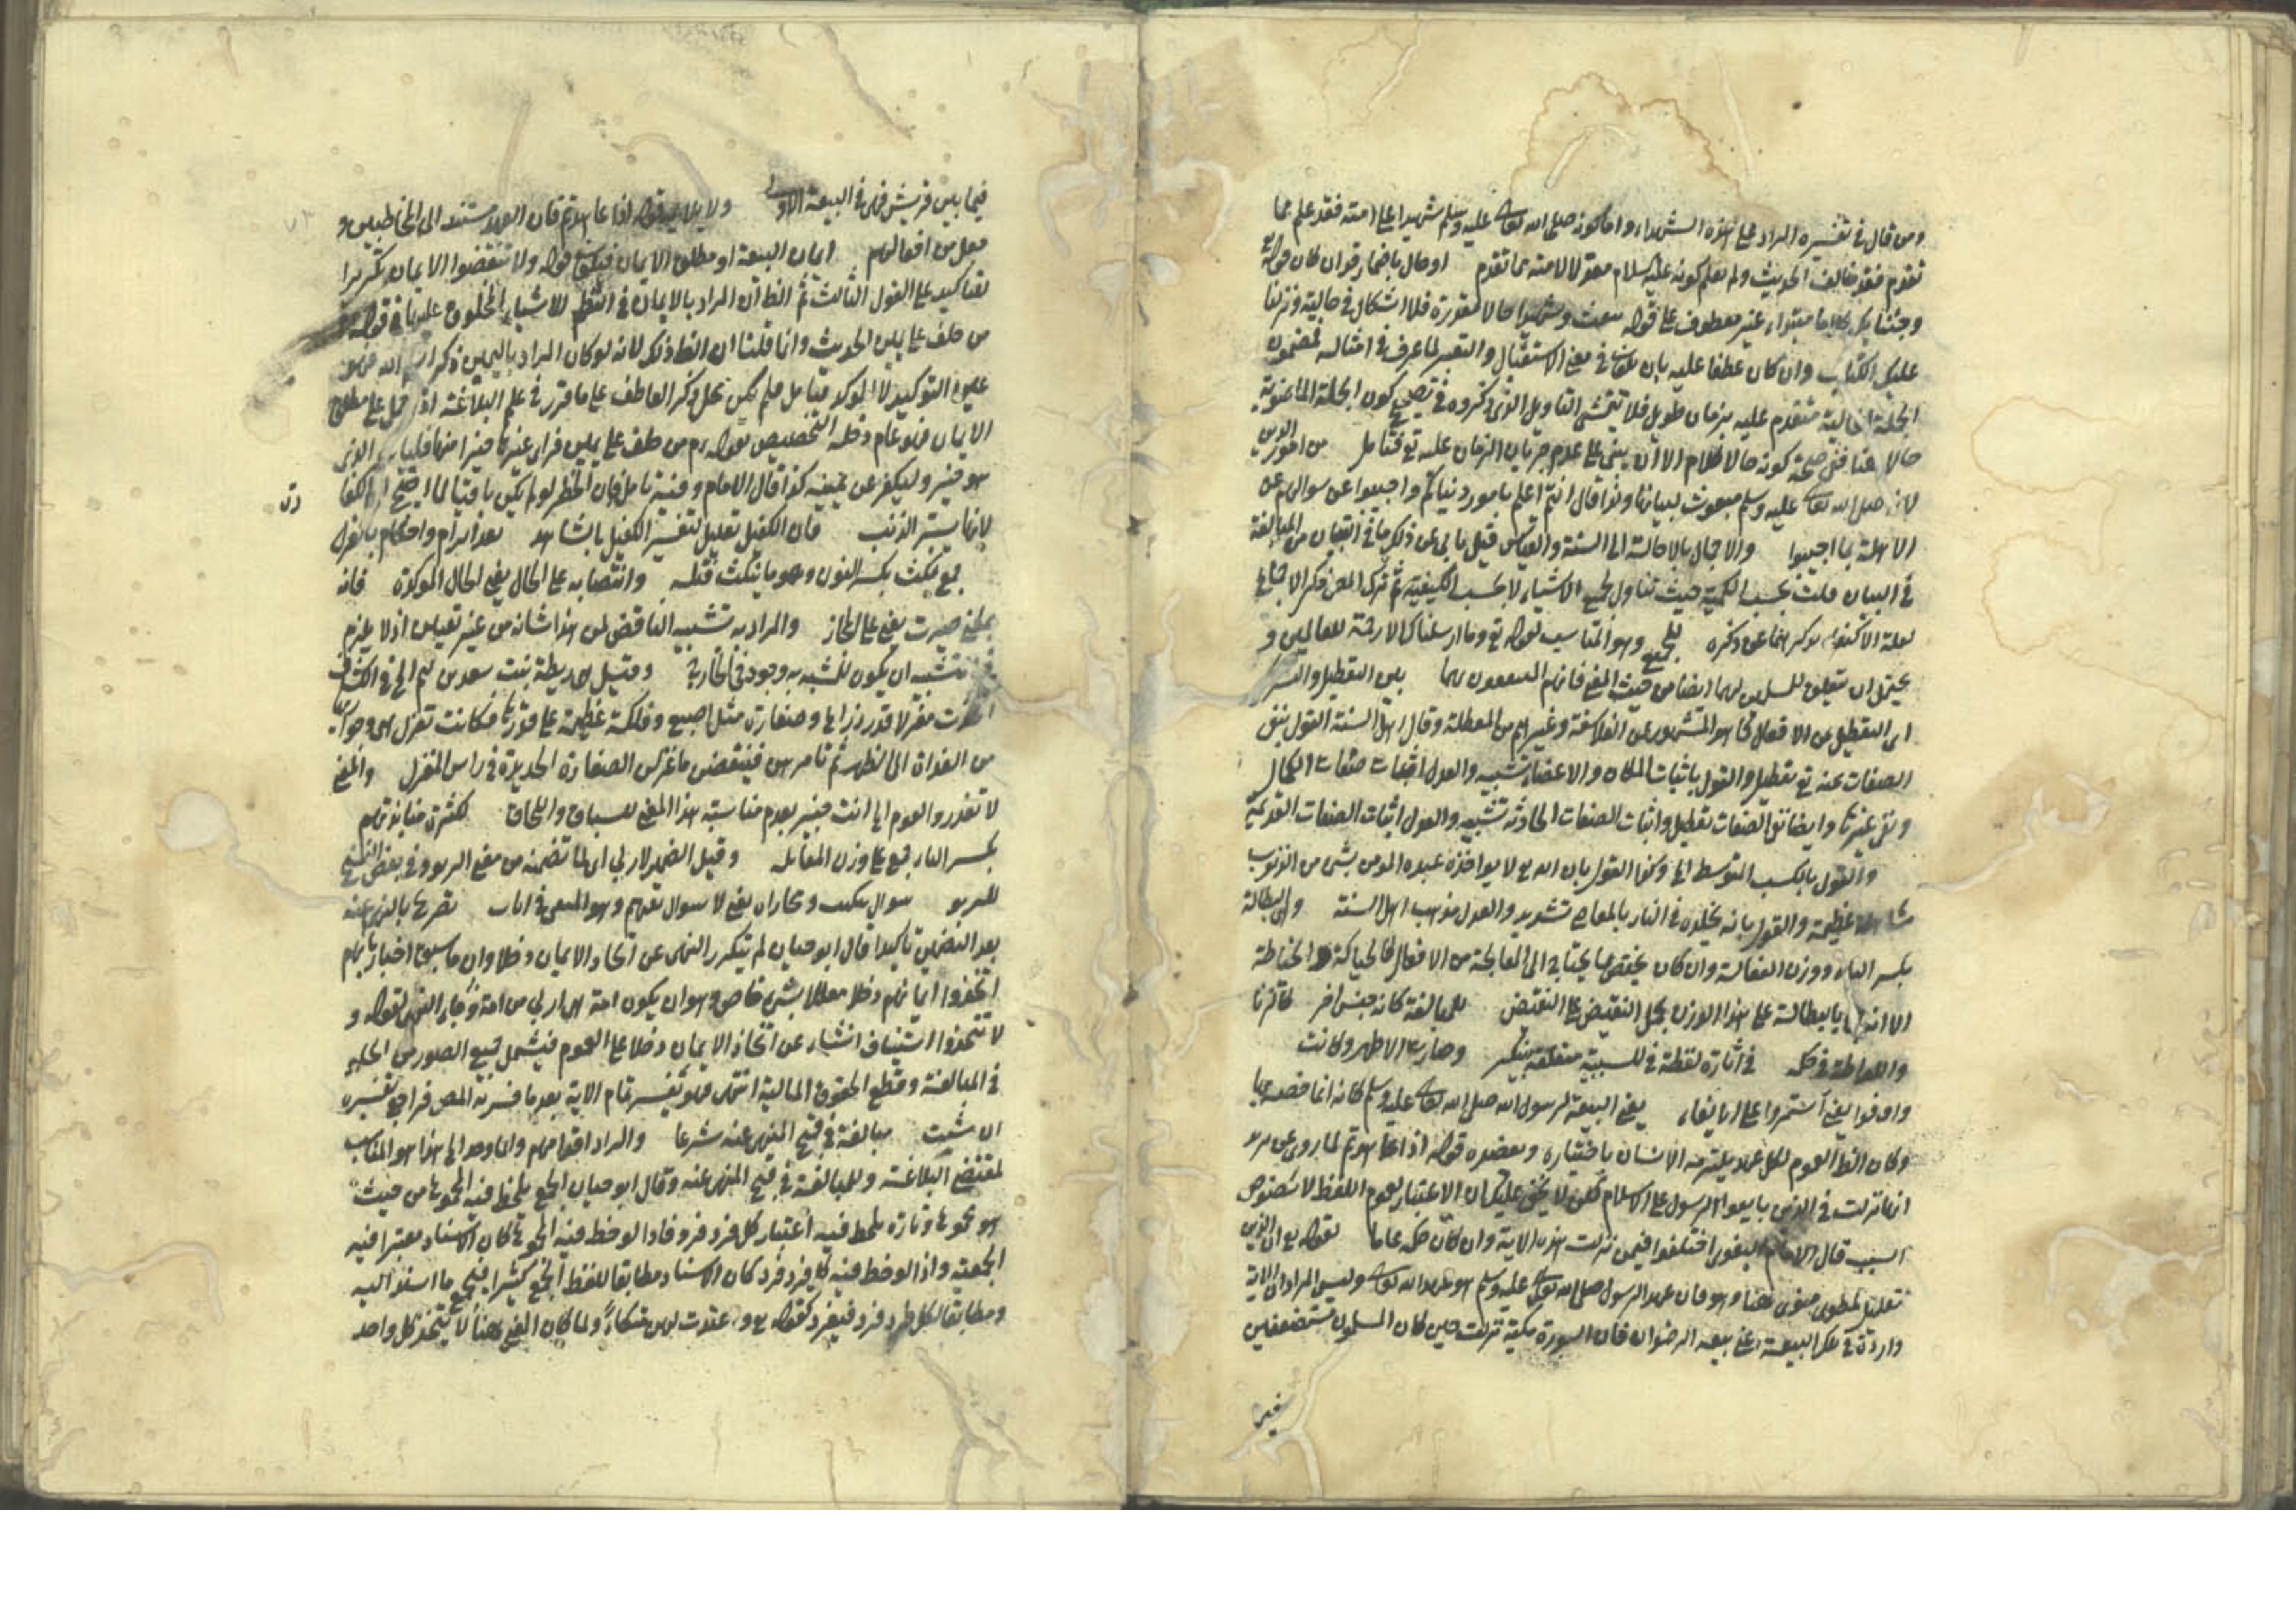 ومن قال في تفسيره المراد على هذه الشهداء واما كونه صلى الله تعالى عليه وسلم شهيدا على امته فقد علم مما
تقدم فقد خالف الحديث ولم يعلم كونه عليه السلام معدلا لامته مما تقدم او حال باضمار قد وان كان قوله
وجئنا بك كلاما مبتداء غير معطوف على قوله نبعث وشهيدا حالا مقدرة فلا اشكال في حالية ونزلنا
عليك الكتاب وان كان عطفا عليه بان يكون في معنى الاستقبال والتعبير لما عرف في امثاله فمضمون
الجملة الحالية متقدم عليه بزمان طويل فلا يتمشى التاويل الذي ذكروه في تصحيح كون الجملة الماضوية
حالا هنا ففي صحة كونه حالا كلام الا ان يبنى على عدم جريان الزمان عليه تع فتامل من امور الدين
لانه صلى الله تعالى عليه وسلم مبعوث لبيانها ولذا قال انتم اعلم بامور دنياكم واجيبوا عن سؤالهم عن
الاهلة بما اجيبوا والاجمال بالاحالة الى السنة والقياس قيل يابى عن ذلك ما في التبيان من المبالغة
في البيان قلت بحسب الكمية حيث تناول لجميع الاشياء لا بحسب الكيفية ثم ترك المص ذكر الاجماع
للجميع وهو المناسب لقوله تع وما ارسلناك الا رحمة للعالمين و
يحتمل ان يتعلق للمسلمين بهما ايضا من حيث المعنى فانهم المنتفعون بهما بين التعطيل والتشريك
اى التعطيل عن الافعال كما هو المشهور عن الفلاسفة وغيرهم من المعطلة وقال اهل السنة القول بنفي
الصفات عنه تع تعطيل والقول باثبات المكان والاعضاء تشبيه والعدل اثبات صفات الكمال
ونفي غيرها وايضا نفي الصفات تعطيل واثبات الصفات الحادثة تشبيه والعدل اثبات الصفات القديمة
والقول بالكسب المتوسط الخ وكذا القول بان الله تع لا يواخذ عبده المومن بشئ من الذنوب
مساهلة عظيمة والقول بانه يخلده في النار بالمعاصي تشديد والعدل مذهب اهل السنة والبطالة
بكسر الباء ووزن الفعالة وان كان يختص بما يحتاج الى المعالجة من الافعال كالحياكة والخياطة
الا انه بالبطالة على هذا الوزن بحمل النقيض على النقيض للمبالغة كانه جنس اخر
في اثارة لفظة في للسببية متعلقة بينكر وصارت الاطهر وكانت
واوفوا يعني استمروا على الايفاء يعنى البيعة لرسول الله صلى الله تعالى عليه وسلم كانه انما خصه بها
وكان الظ العموم لكل عهد يلتزمه الانسان باختياره ويعضده قوله اذا عاهدتم لما روى عن بريدة
انها نزلت في الذين بايعوا الرسول على الاسلام لكن لا يخفى عليك ان الاعتبار لعموم اللفظ لا لخصوص
السبب قال الامام البغوي اختلفوا فيمن نزلت هذه الاية وان كان حكمه عاما لقوله تع ان الذين
تعليل لمطوى منوى ههنا وهو فان عهد الرسول صلى الله تعالى عليه وسلم هو عهد الله تعالى وليس المراد ان الاية
واردة في تلك البيعة اعني بيعة الرضوان فان السورة مكية نزلت حين كان المسلمون مستضعفين
فيما بين قريش فهى في البيعة الاولى ولا يلايمه قوله اذا عاهدتم فان العهد مستند الى المخاطبين و
فعل من افعالهم ايمان البيعة او مطلق الايمان فيكون قوله ولا تنقضوا الايمان تكريرا
لتاكيد على القول الثالث ثم الظ ان المراد بالايمان في النظم الاشياء المحلوف عليها في قوله عم
من حلف على يمين الحديث وانما قلنا ان الظ ذلك لانه لو كان المراد باليمين ذكر اسم الله
التوكيد لا الموكد فتامل فلم يكن محل ذكر العاطف على ما تقرر في علم البلاغة اذ حمل على مطلق
الايمان فهو عام دخله التخصيص لقوله عم من حلف على يمين فراى غيرها خيرا منها فليات الذي
هو خير وليكفر عن يمينه كذا قال الامام وفيه تامل فان الحظر لو لم يكن باقيا لما احتيج الى الكفا
رة
لانها يستر الذنب فان الكفيل تعليل لتفسير الكفيل بالشاهد بعد ابرام واحكام بالغزل
جمع نكث بكسر النون وهو ما ينكث فتله وانتصابه على الحال يعنى الحال الموكدة فانه
بمعنى صيرت يعنى على المجاز والمراد به تشبيه الناقض بمن هذا شانه من غير تعيين اذ لا يلزم
في التشبيه ان يكون للمشبه به وجود في الخارج وقيل هى ريطة بنت سعد بن تيم الخ في الكشاف
اتخذت مغزلا قدر ذراع وصنارة مثل اصبع وفلكة عظيمة على قدرها فكانت تغزل هى وجواريها
من الغداة الى الظهر ثم تامرهن فينقضن ما غزلن الصنارة الحديدة في راس المغزل والمعنى
لا تغدروا القوم الخ انت خبير بعدم مناسبة هذا المعنى للسباق واللحاق لكثرة منابذتهم
بكسر الباء جمع على وزن المقاتلة وقيل الضمير لاربى اى لما تضمنه من معنى الربو وفي بعض النسخ
للربو سوال تبكيت ومجازاة يعنى لا سوال تفهم وهو المنفى في ايات تصريح بالنهى عنه
بعد التضمين تاكيدا قال ابو حيان لم يتكرر النهى عن اتخاذ الايمان دخلا وان ما سبق اخبار بانهم
اتخذوا ايمانهم دخلا معللا بشئ خاص وهو ان يكون امة هى اربى من امة وجاء النهى لقوله و
لا تتخذوا استيناف انشاء عن اتخاذ الايمان دخلا على العموم فيشمل جميع الصور من الحلف
في المبالغة وقطع الحقوق المالية انتهى فهو تفسير تمام الاية بعد ما فسرته المص فراجع تفسيره
ان شئت مبالغة في قبح المنهى عنه شرعا والمراد اقدامهم وانما وحد الى هذا هو المناسب
لمقتضى البلاغة وللمبالغة في قبح المنهى عنه وقال ابو حيان الجمع يلحظ فيه المجموع من حيث
هو مجموع وتارة يلحظ فيه اعتبار كل فرد فرد فاذا لوحظ فيه المجموع كان الاسناد معتبرا فيه
الجمعية واذا لوحظ فيه كل فرد فرد كان الاسناد مطابقا للفظ الجمع كثيرا فيجمع ما اسند اليه
ومطابقا لكل فرد فرد فيفرد كقوله تع واعتدت لهن متكاء ولما كان المعنى ههنا لا يتخذ كل واحد